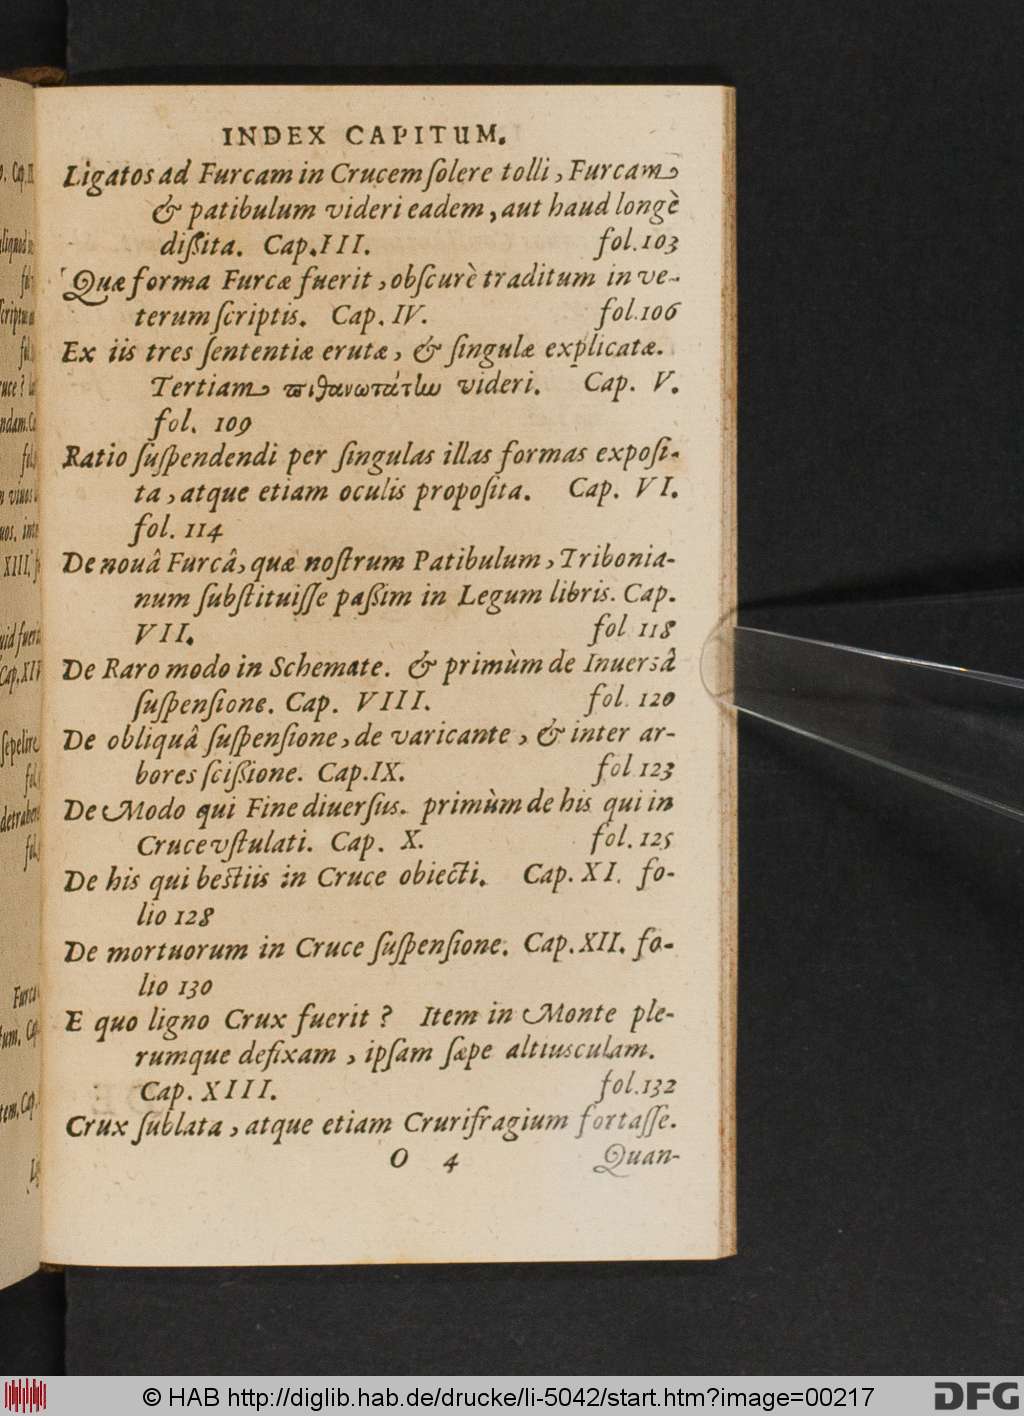 INDEX CAPITUM.
Ligatos ad Furcam in Crucem ſolere tolli, Furcam
& patibulum videri eadem, aut haud longè
diſſita. Cap. III. fol. 103
Quæ forma Furcæ fuerit, obſcurè traditum in ve-
terum ſcriptis. Cap. IV. fol. 106
Ex iis tres ſententiæ erutæ, & ſingulæ explicatæ.
Tertiam πιθανωτάτην videri. Cap. V.
fol. 109
Ratio ſuſpendendi per ſingulas illas formas expoſi-
ta, atque etiam oculis propoſita. Cap. VI.
fol. 114
De nouâ Furcâ, quæ noſtrum Patibulum, Tribonia-
num ſubſtituiſſe paßim in Legum libris. Cap.
VII. fol 118
De Raro modo in Schemate. & primùm de Inuersâ
ſuſpenſione. Cap. VIII. fol. 120
De obliquâ ſuſpenſione, de varicante, & inter ar-
bores ſcißione. Cap. IX. fol 123
De Modo qui Fine diuerſus. primùm de his qui in
Cruce vſtulati. Cap. X. fol. 125
De his qui beſtiis in Cruce obiecti. Cap. XI. fo-
lio 128
De mortuorum in Cruce ſuſpenſione. Cap. XII. fo-
lio 130
E quo ligno Crux fuerit? Item in Monte ple-
rumque defixam, ipſam ſæpe altiusculam.
Cap. XIII. fol. 132
Crux ſublata, atque etiam Crurifragium fortaſſe.
O 4 Quan-
© HAB http://diglib.hab.de/drucke/li-5042/start.htm?image=00217
DFG